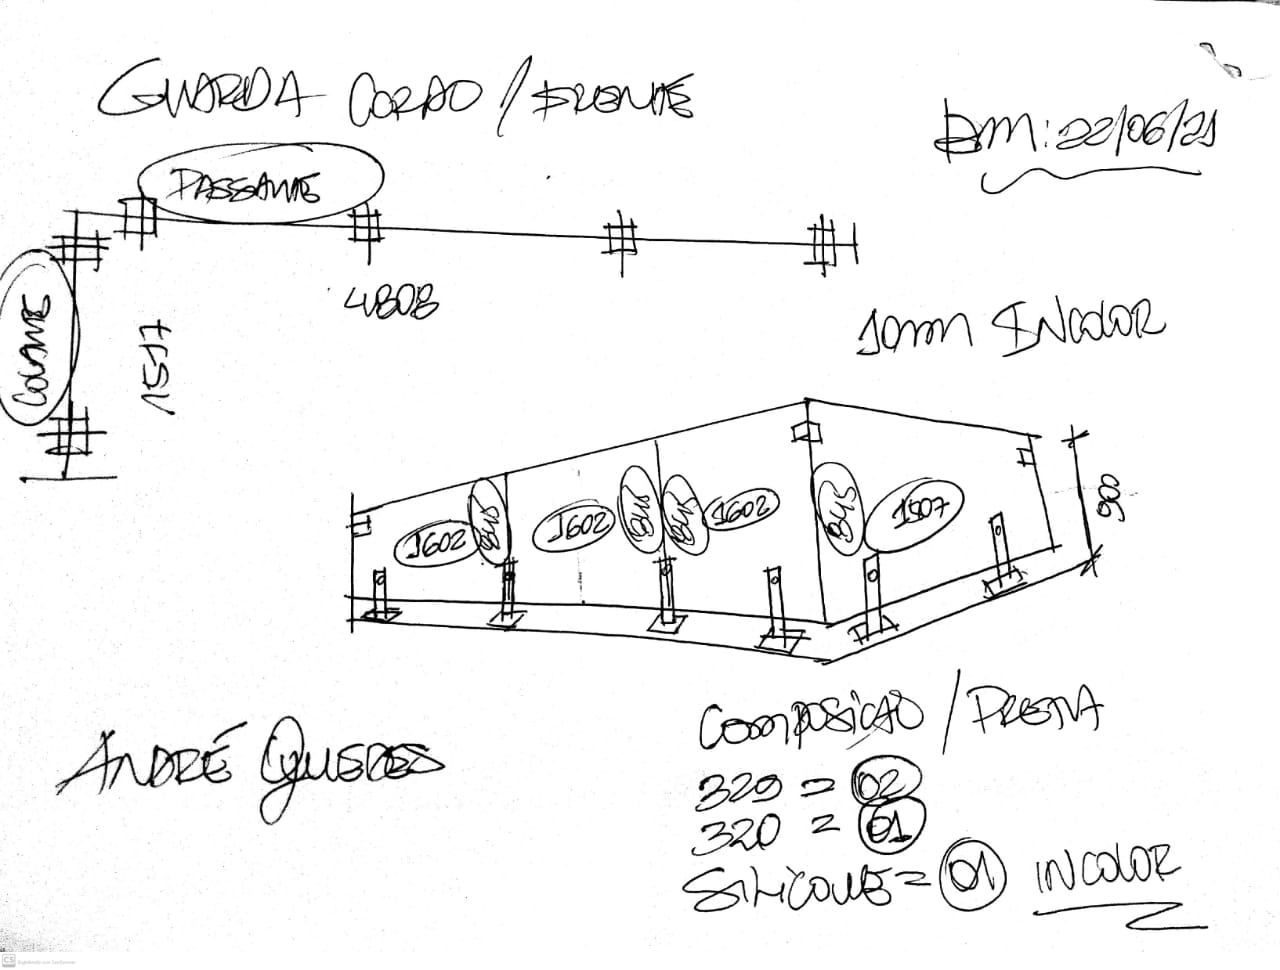 GUARDA CORPO / FRENTE
BM: 22/06/21
PASSANTE
COLANTE
4808
1517
10mm INCOLOR
1602
B4S
1602
B4S
B4S
1602
B4S
1507
900
COMPOSIÇÃO / PRETA
329 = 02
320 = 01
SILICONE = 01 INCOLOR
ANDRÉ GUEDES
CS Digitalizado com CamScanner